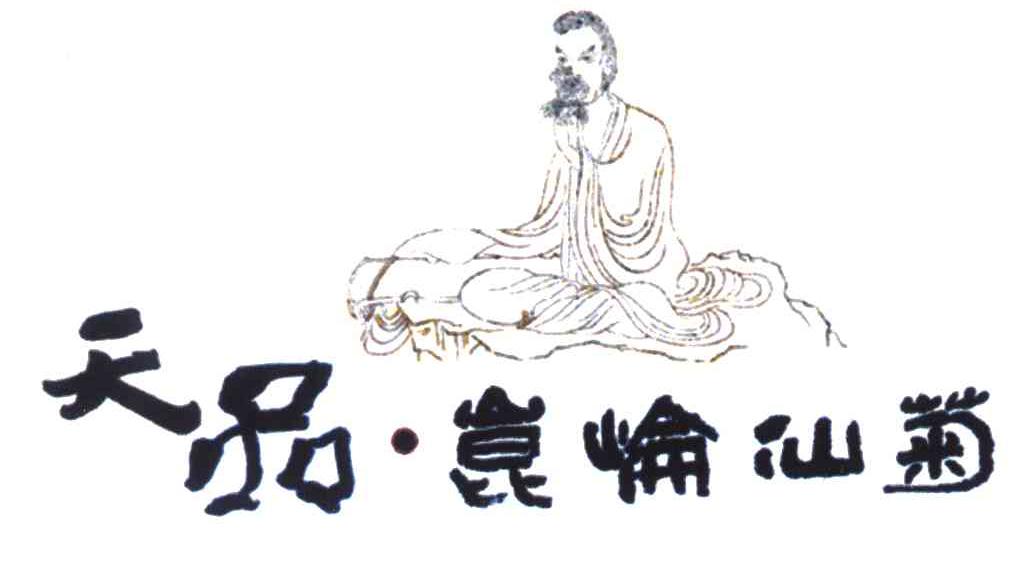 天品·崑崙仙菊